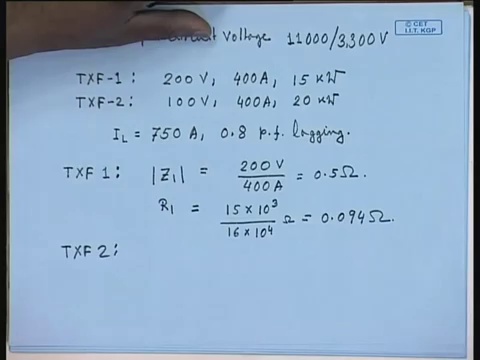 Voltage 11000/3,300V
© CET
I.I.T. KGP
TXF-1: 200V, 400A, 15 kW
TXF-2: 100V, 400A, 20 kW
I_L = 750 A, 0.8 p.f. lagging.
TXF 1: |Z₁| = 200 V / 400 A = 0.5Ω.
R₁ = 15 × 10³ / 16 × 10⁴ Ω = 0.094Ω.
TXF 2: